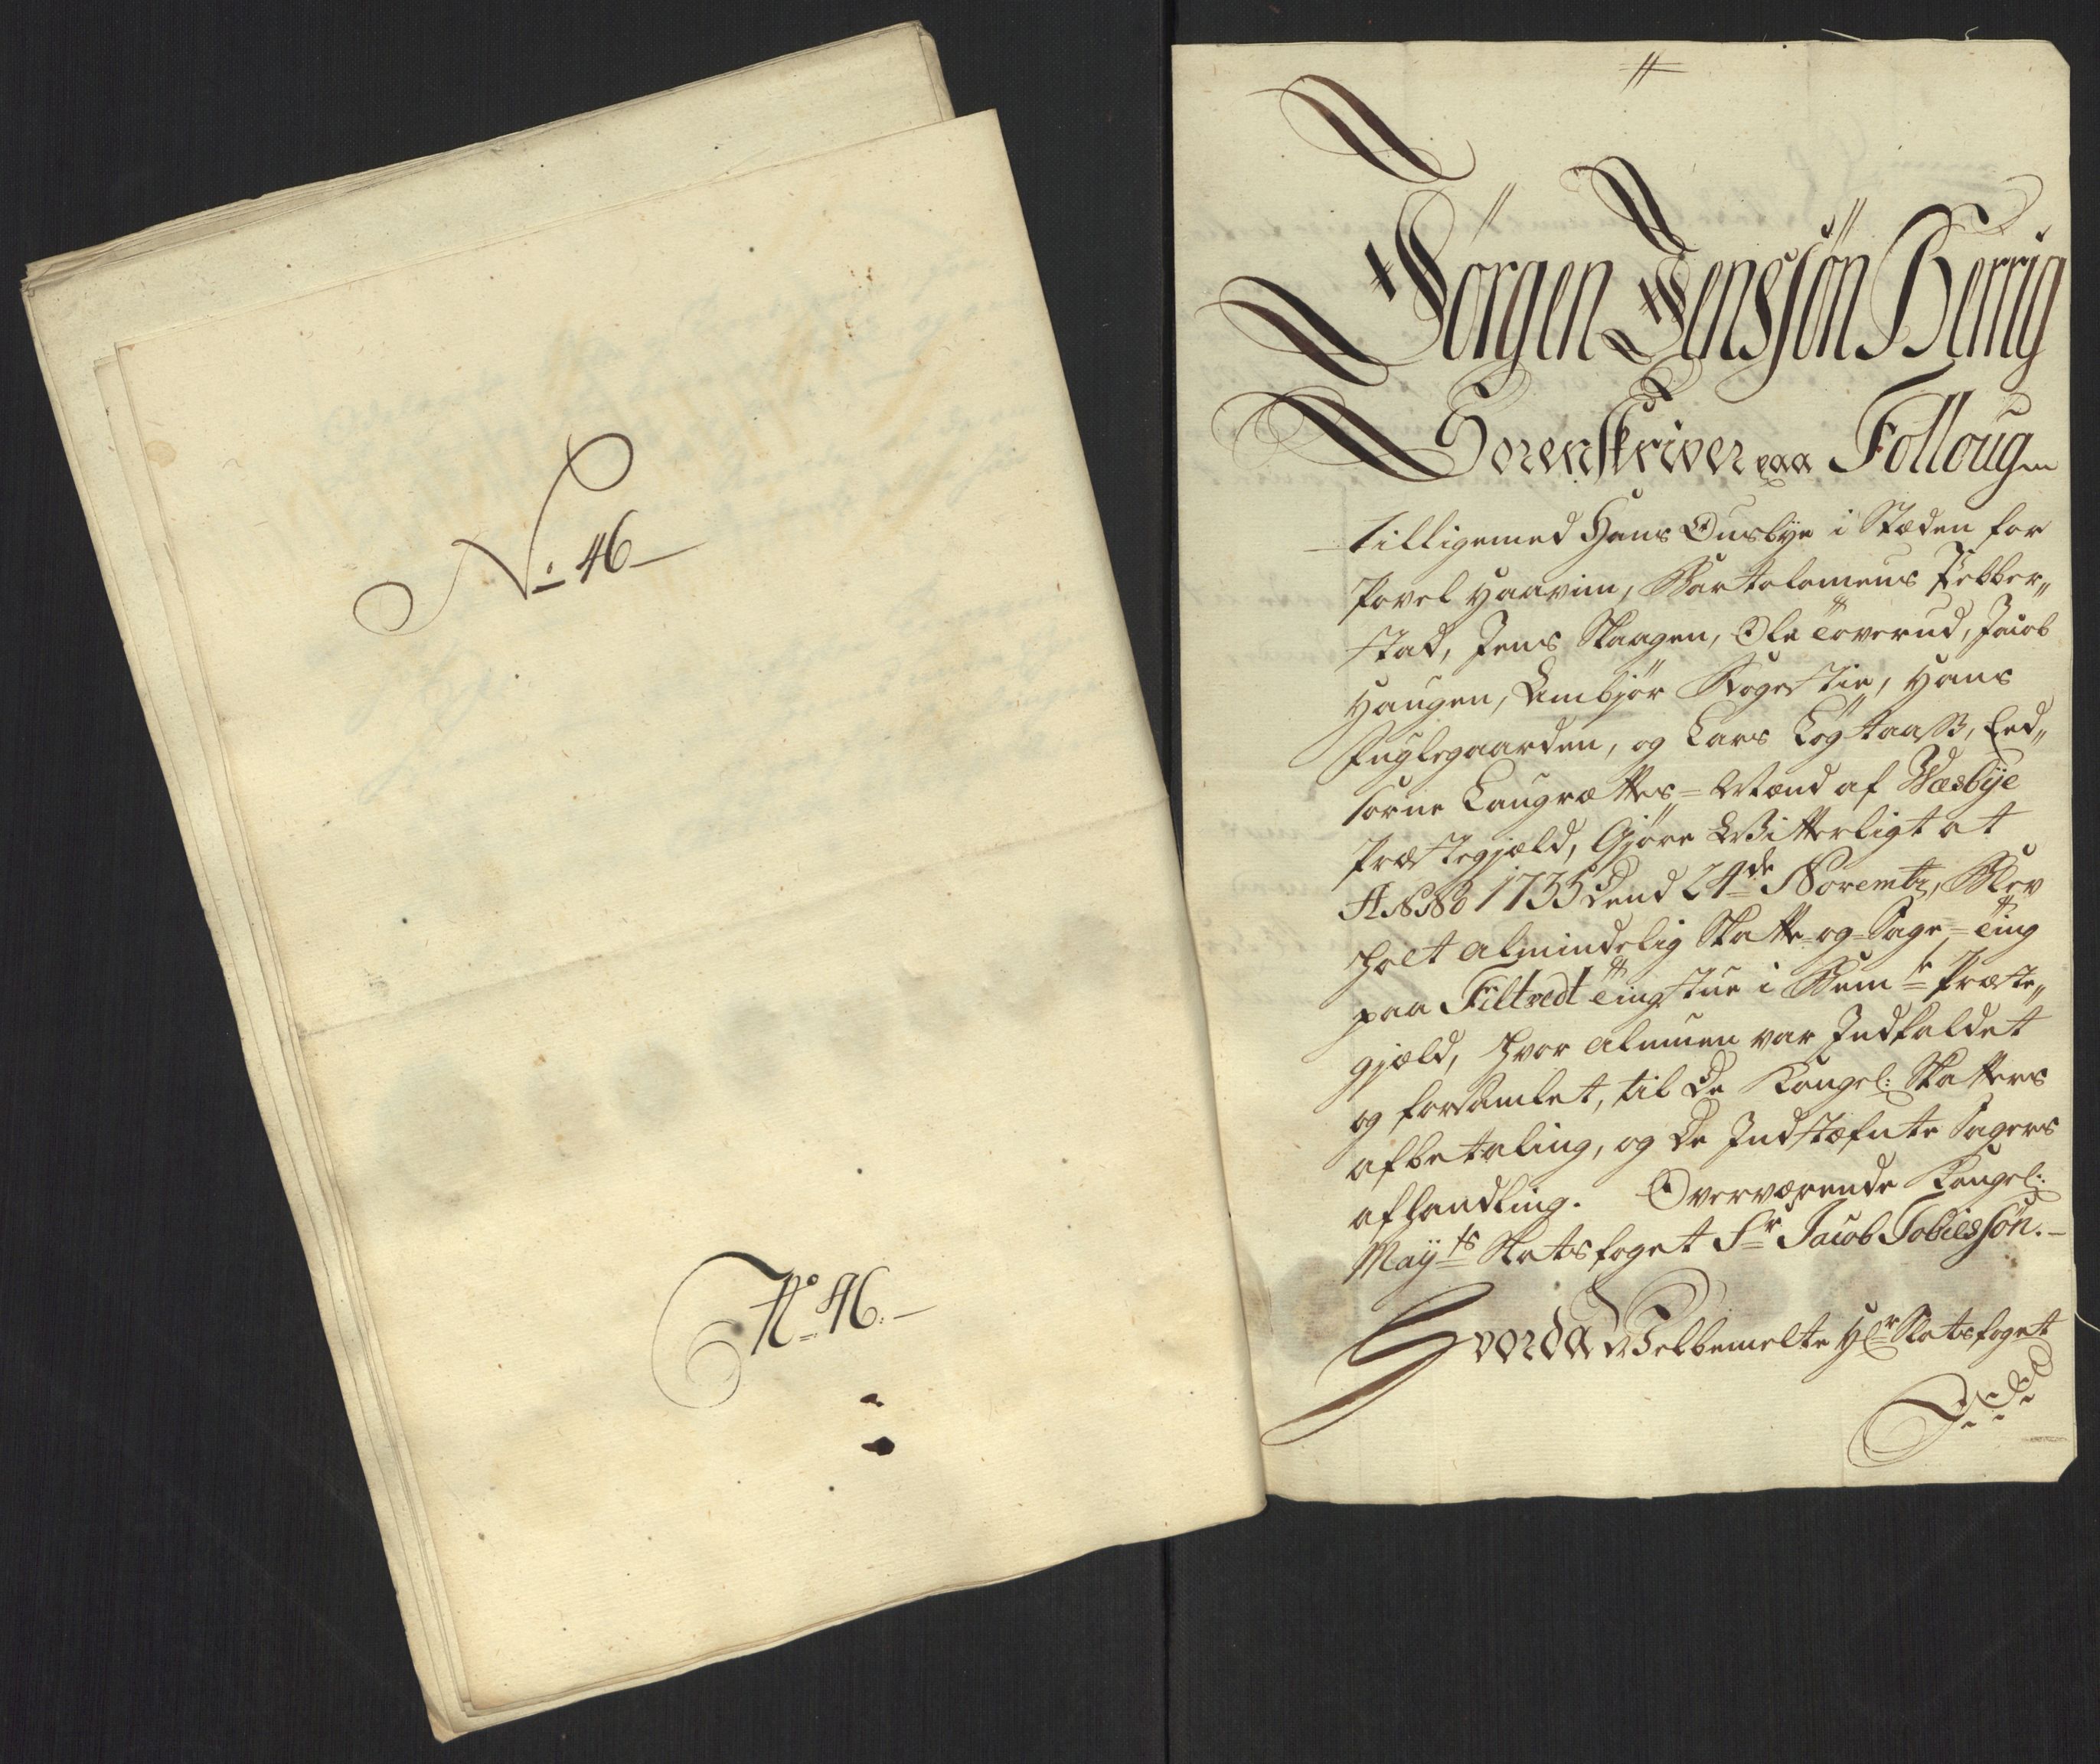 No 46
No 46.
Jörgen Jenssön Berrig
Sorenskriver paa Folloug
tilligemed Hans Ousbÿe i Stæden for
Povel Haavim, Bartolomeus Febber„
stad, Jens Skaagen, Ole Toverud, Jacob
Haugen, Embjör Kogestie, Hans
Fuglegaarden, og Lars Løgtaaß, Eed„
sorne Laugrættes=Mænd af Næsbÿe
Præstegjæld, Gjöre Witterligt at
ANNO 1735 Dend 24de Novembr, Blev
holt almindelig Skatte-og-Sage=Ting
paa Filtvedt Tingstue i Bemte Præste„
gjæld, hvor almuen var Indkaldet
og forsamlet, til De Kongel: Skatters
afbetaling, og De Indstæfnte Sagers
afhandling. Overværende Kongel:
Maÿts Slotsfoget Sr Jacob Tobiessön.
Hvorda Velbemelte Hr Slotsfoget